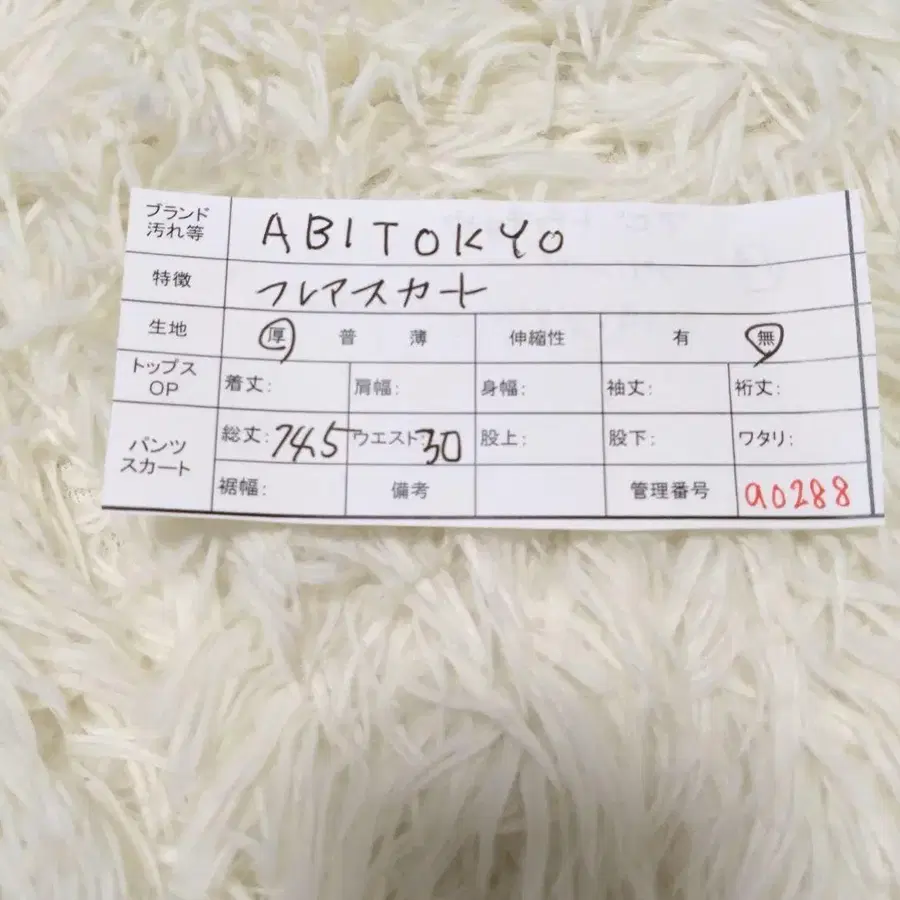 ブランド
汚れ等 ABITOKYO
特徴 フレアスカート
生地 厚 普 薄 伸縮性 有 無
トップス
OP 着丈: 肩幅: 身幅: 袖丈: 裄丈:
パンツ
スカート 総丈: 74.5 ウエスト: 30 股上: 股下: ワタリ:
裾幅: 備考 管理番号 a0288